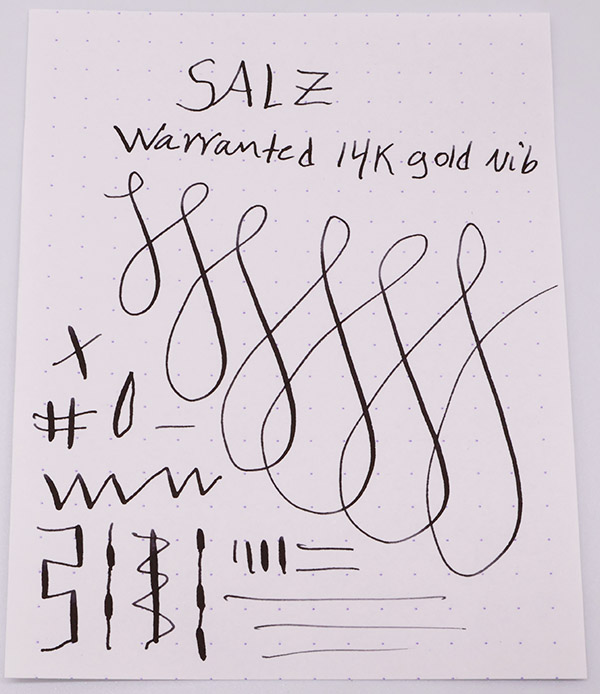 SALZ
Warranted 14K gold nib
x
# 0 —